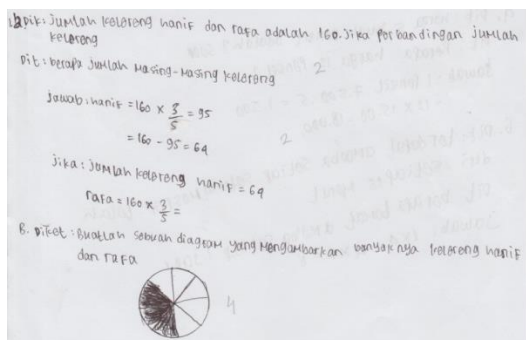 1.a Dik: Jumlah kelereng hanif dan rafa adalah 160. Jika perbandingan jumlah
kelereng
Dit: berapa jumlah masing-masing kelereng 2
Jawab: hanif = 160 x 3/5 = 95
= 160 - 95 = 64 2
Jika: jumlah kelereng hanif = 64
rafa = 160 x 3/5 =
B. Diket: Buatlah sebuah diagram yang mengambarkan banyaknya kelereng hanif
dan rafa
4